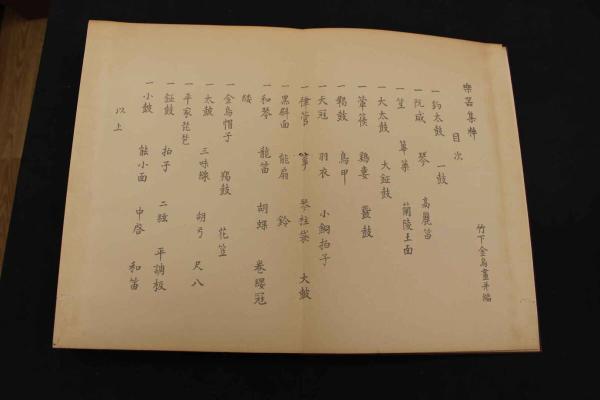 楽器集粋
目次
竹下金烏畫并編
一釣太鼓 一鼓
一阮咸 琴 高麗笛
一笙 篳篥 蘭陵王面
一大太鼓 大鉦鼓
一箜篌 鶏婁 鼗鼓
一鞨鼓 鳥甲
一天冠 羽衣 小銅拍子
一律管 箏 琴柱袋 大皷
一黒尉面 能扇 鈴
一和琴 龍笛 胡蝶 巻纓冠
緌
一金烏帽子 羯鼓 花笠
一太皷 三味線 胡弓 尺八
一平家琵琶
一鉦鼓 拍子 二独 平調板
一小皷 能小面 中啓 和笛
以上